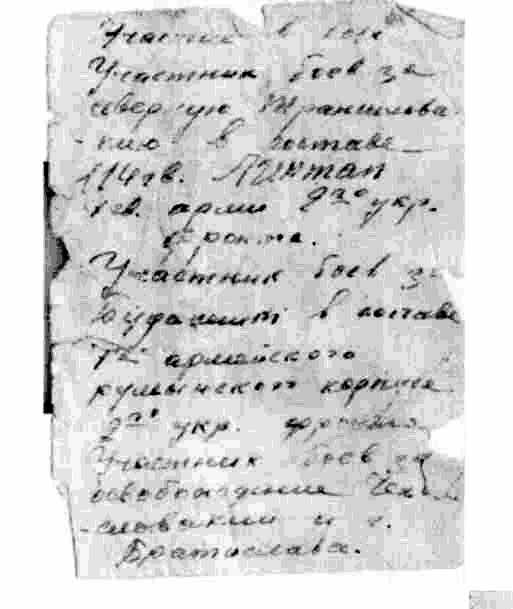 Участник в бою
Участник боев за
северную Трансильва
-нию в составе
114 гв.
гв. арми 2го укр.
фронта.
Участник боев за
Будапешт в составе
армейского
румынского корпуса
2го укр. фронта
Участник боев за
освобождение Чехо
-словакии и г.
Братислава.